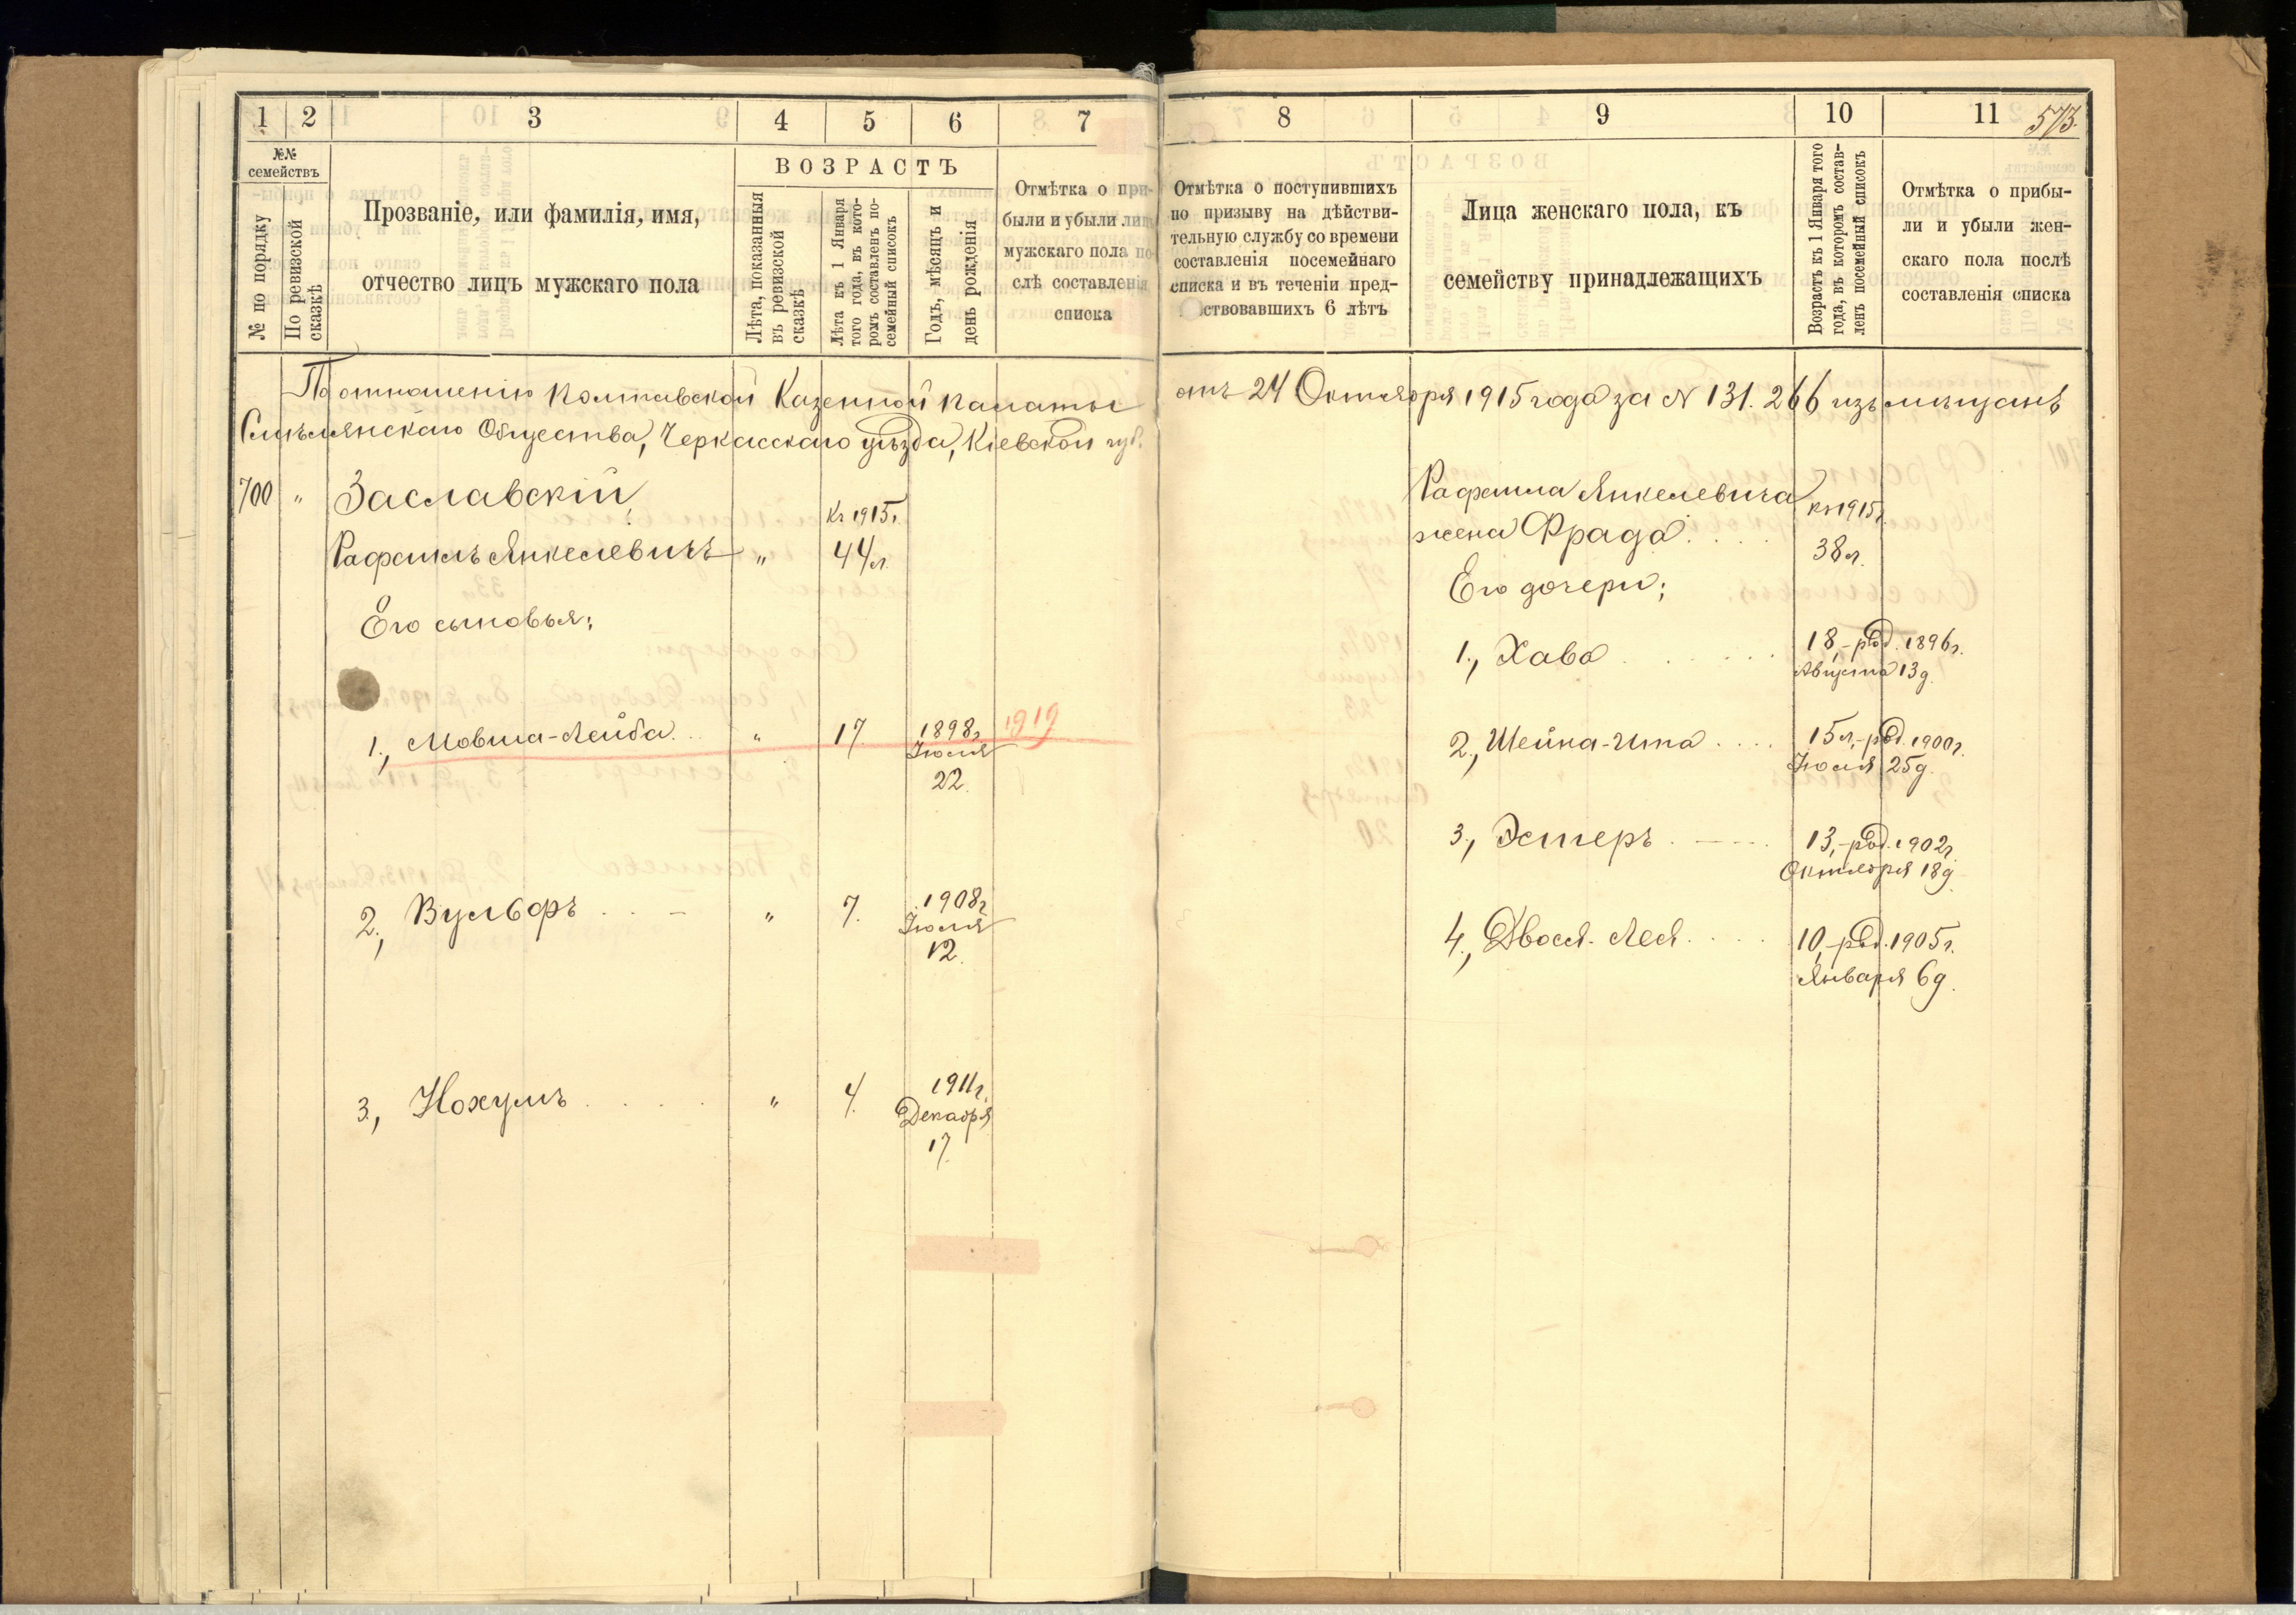 1 2 3 4 5 6 7
№№ семействъ
№ по порядку
По ревизской сказкѣ
Прозваніе, или фамилія, имя,
отчество лицъ мужскаго пола
ВОЗРАСТЪ
Лѣта, показанныя
въ ревизской
сказкѣ
Лѣта къ 1 Января
того года, въ кото-
ромъ составленъ по-
семейный списокъ
Годъ, мѣсяцъ и
день рожденія
Отмѣтка о при-
были и убыли лицъ
мужскаго пола по-
слѣ составленія
списка
8 9 10 11 573.
Отмѣтка о поступившихъ
по призыву на дѣйстви-
тельную службу со времени
составленія посемейнаго
списка и въ теченіи пред-
ствовавшихъ 6 лѣтъ
Лица женскаго пола, къ
семейству принадлежащихъ
Возрастъ къ 1 Января того
года, въ которомъ состав-
ленъ посемейный списокъ
Отмѣтка о прибы-
ли и убыли жен-
скаго пола послѣ
составленія списка
По отношенію Полтавской Казенной Палаты отъ 24 Октября 1915 года за N 131.266 изъ мѣщанъ
Смѣлянскаго Общества, Черкасскаго уѣзда, Кіевской губ.
700 " Заславскій,
Къ 1915г.
Рафаилъ Янкелевичъ " 44л.
Его сыновья:
1., Мовша-Лейба. " 17. 1898г. 1919
Іюля
22.
2., Вульфъ " 7. 1908г.
Іюля
12.
3., Нохумъ " 4. 1911г.
Декабря
17.
Рафаила Янкелевича
жена Фрада къ 1915г.
38л.
Его дочери:
1., Хава 18,-род. 1896г.
Августа 13д.
2., Шейна-Ита 15л,-род. 1900г.
Іюля 25д.
3., Эстеръ 13,-род. 1902г.
Октября 18д.
4., Двося-Лея 10,-род. 1905г.
Января 6д.